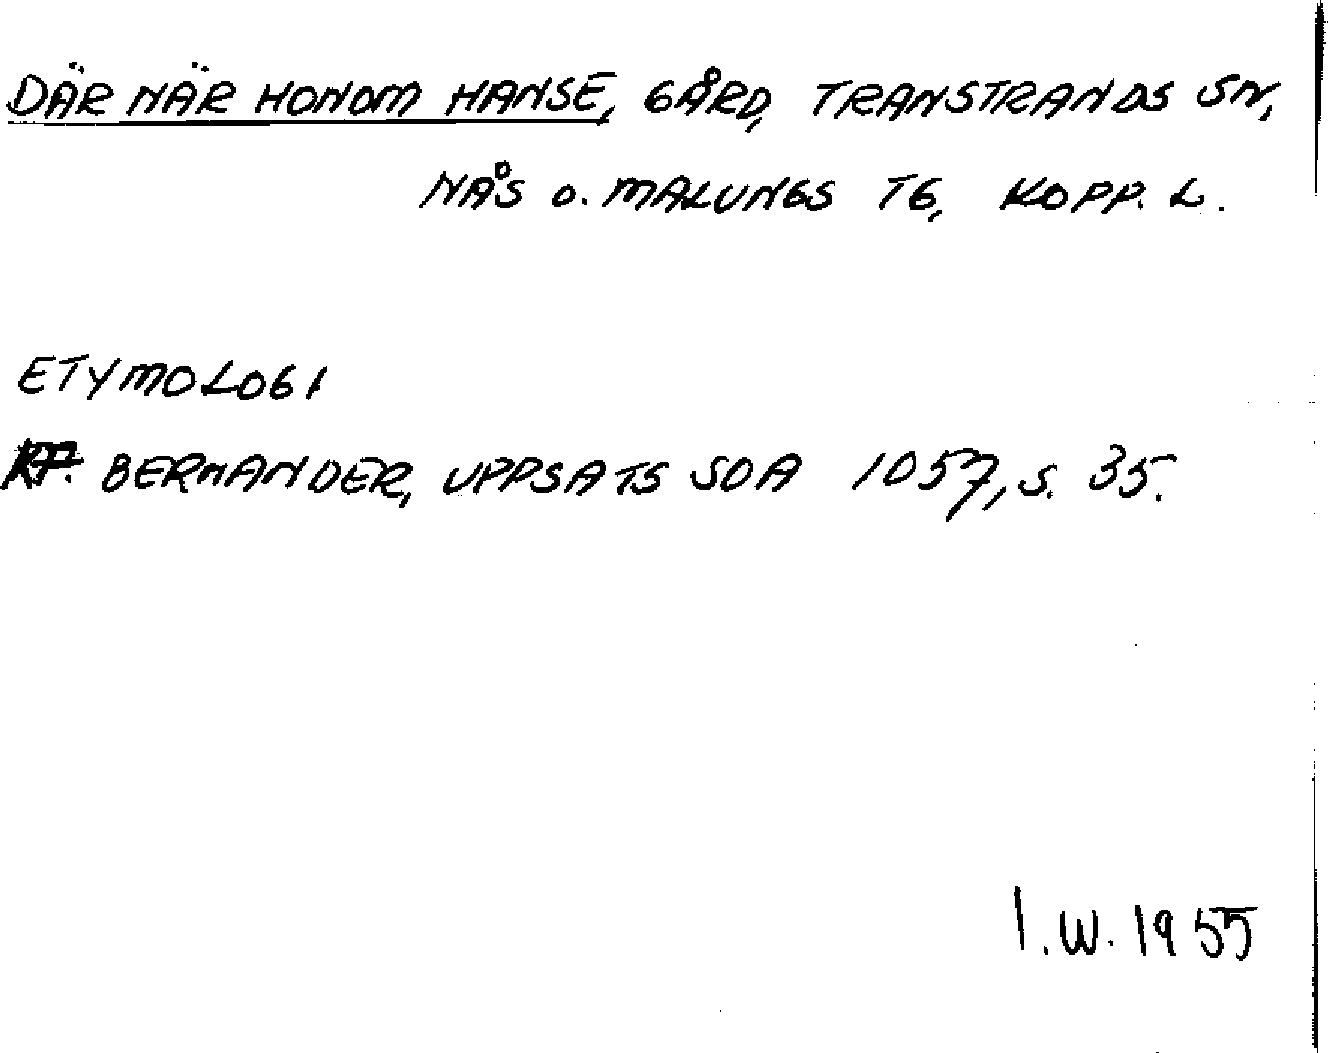 DÄR NÄR HONOM HANSE, GÅRD, TRANSTRANDS SN,
NÅS O. MALUNGS TG, KOPP. L.
ETYMOLOGI
BERNANDER, UPPSATS SOA 1057, S. 35.
I.W. 1955